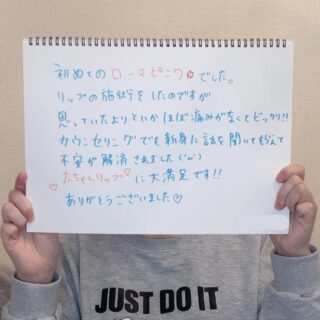 初めてのローマピンクでした。
リップの施術をしたのですが
思っていたよりというかほぼ痛みがなくてビックリ!!
カウンセリングでも親身に話を聞いてもらえて
不安が解消されました(';ω;)
赤ちゃんリップ♡に大満足です!!
ありがとうございました♡
JUST DO IT